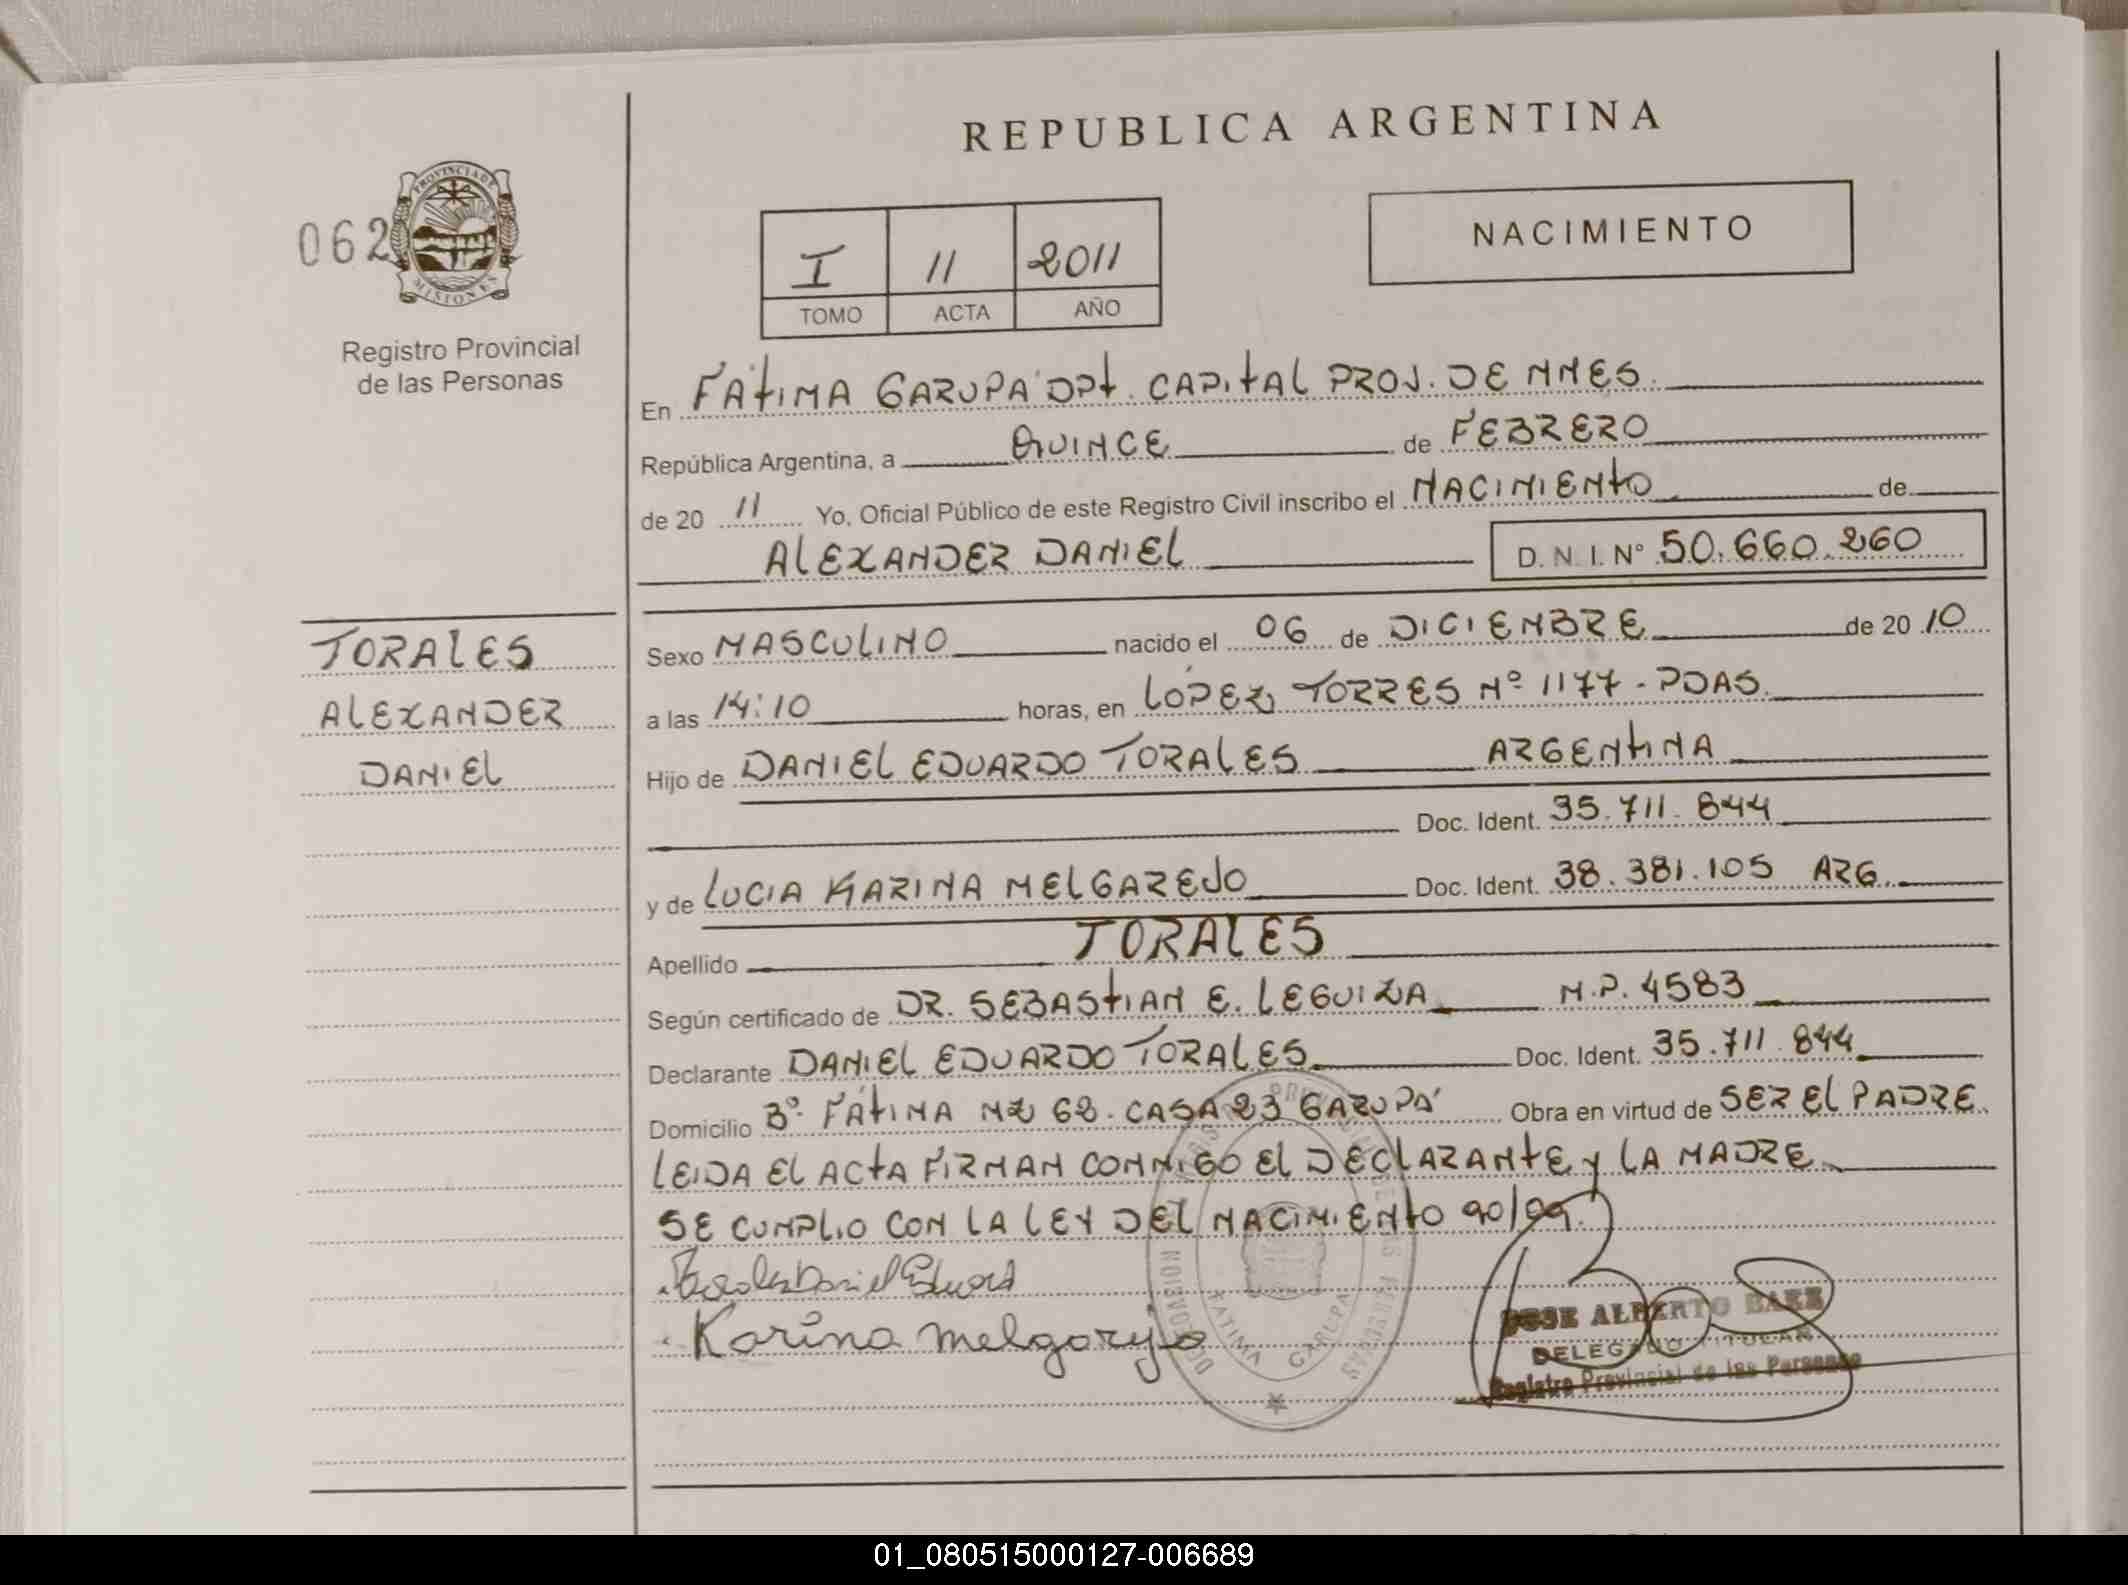 REPUBLICA ARGENTINA
062
PROVINCIA DE
MISIONES
Registro Provincial
de las Personas
I 11 2011
TOMO ACTA AÑO
NACIMIENTO
En FÁTIMA GARUPA DPT. CAPITAL PROV. DE MNES.
República Argentina, a QUINCE de FEBRERO
de 20 11 Yo, Oficial Público de este Registro Civil inscribo el NACIMIENTO de
ALEXANDER DANIEL D.N.I. Nº 50.660.260
TORALES
ALEXANDER
DANIEL
Sexo MASCULINO nacido el 06 de DICIEMBRE de 20 10
a las 14:10 horas, en LÓPEZ TORRES Nº 1177 - PDAS.
Hijo de DANIEL EDUARDO TORALES ARGENTINA
Doc. Ident. 35.711.844
y de LUCIA KARINA MELGAREJO Doc. Ident. 38.381.105 ARG.
Apellido TORALES
Según certificado de DR. SEBASTIAN E. LEGUIZA M.P. 4583
Declarante DANIEL EDUARDO TORALES Doc. Ident. 35.711.844
Domicilio Bº FÁTIMA MZ 62. CASA 23 GARUPÁ Obra en virtud de SER EL PADRE
LEIDA EL ACTA FIRMAN CONMIGO EL DECLARANTE Y LA MADRE.
SE CUMPLIO CON LA LEY DEL NACIMIENTO 90/99.
Torales Daniel Eduard
Karina Melgarejo
FATIMA GARUPA
JOSE ALBERTO BAEZ
DELEGADO TITULAR
Registro Provincial de las Personas
01_080515000127-006689